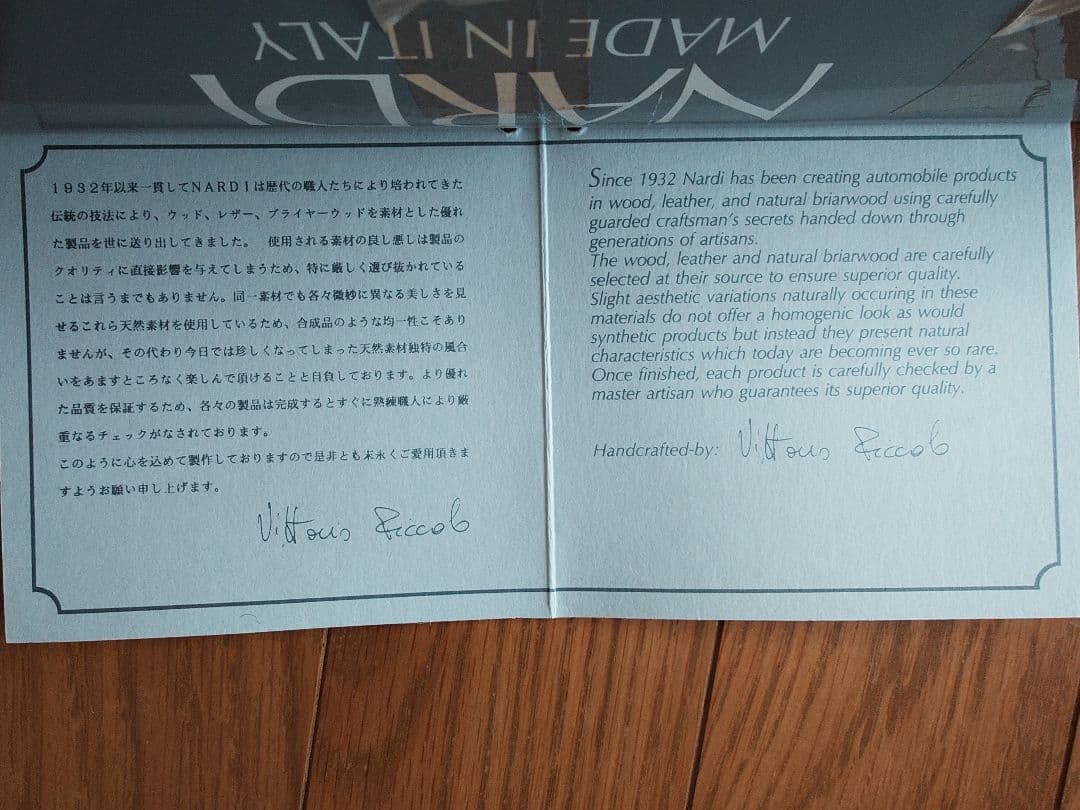 NARDI
MADE IN ITALY
1932年以来一貫してNARDIは歴代の職人たちにより培われてきた
伝統の技法により、ウッド、レザー、ブライヤーウッドを素材とした優れ
た製品を世に送り出してきました。 使用される素材の良し悪しは製品の
クオリティに直接影響を与えてしまうため、特に厳しく選び抜かれている
ことは言うまでもありません。同一素材でも各々微妙に異なる美しさを見
せるこれら天然素材を使用しているため、合成品のような均一性こそあり
ませんが、その代わり今日では珍しくなってしまった天然素材独特の風合
いをあますところなく楽しんで頂けることと自負しております。より優れ
た品質を保証するため、各々の製品は完成するとすぐに熟練職人により厳
重なるチェックがなされております。
このように心を込めて製作しておりますので是非とも末永くご愛用頂きま
すようお願い申し上げます。
Since 1932 Nardi has been creating automobile products
in wood, leather, and natural briarwood using carefully
guarded craftsman's secrets handed down through
generations of artisans.
The wood, leather and natural briarwood are carefully
selected at their source to ensure superior quality.
Slight aesthetic variations naturally occuring in these
materials do not offer a homogenic look as would
synthetic products but instead they present natural
characteristics which today are becoming ever so rare.
Once finished, each product is carefully checked by a
master artisan who guarantees its superior quality.
Handcrafted-by: